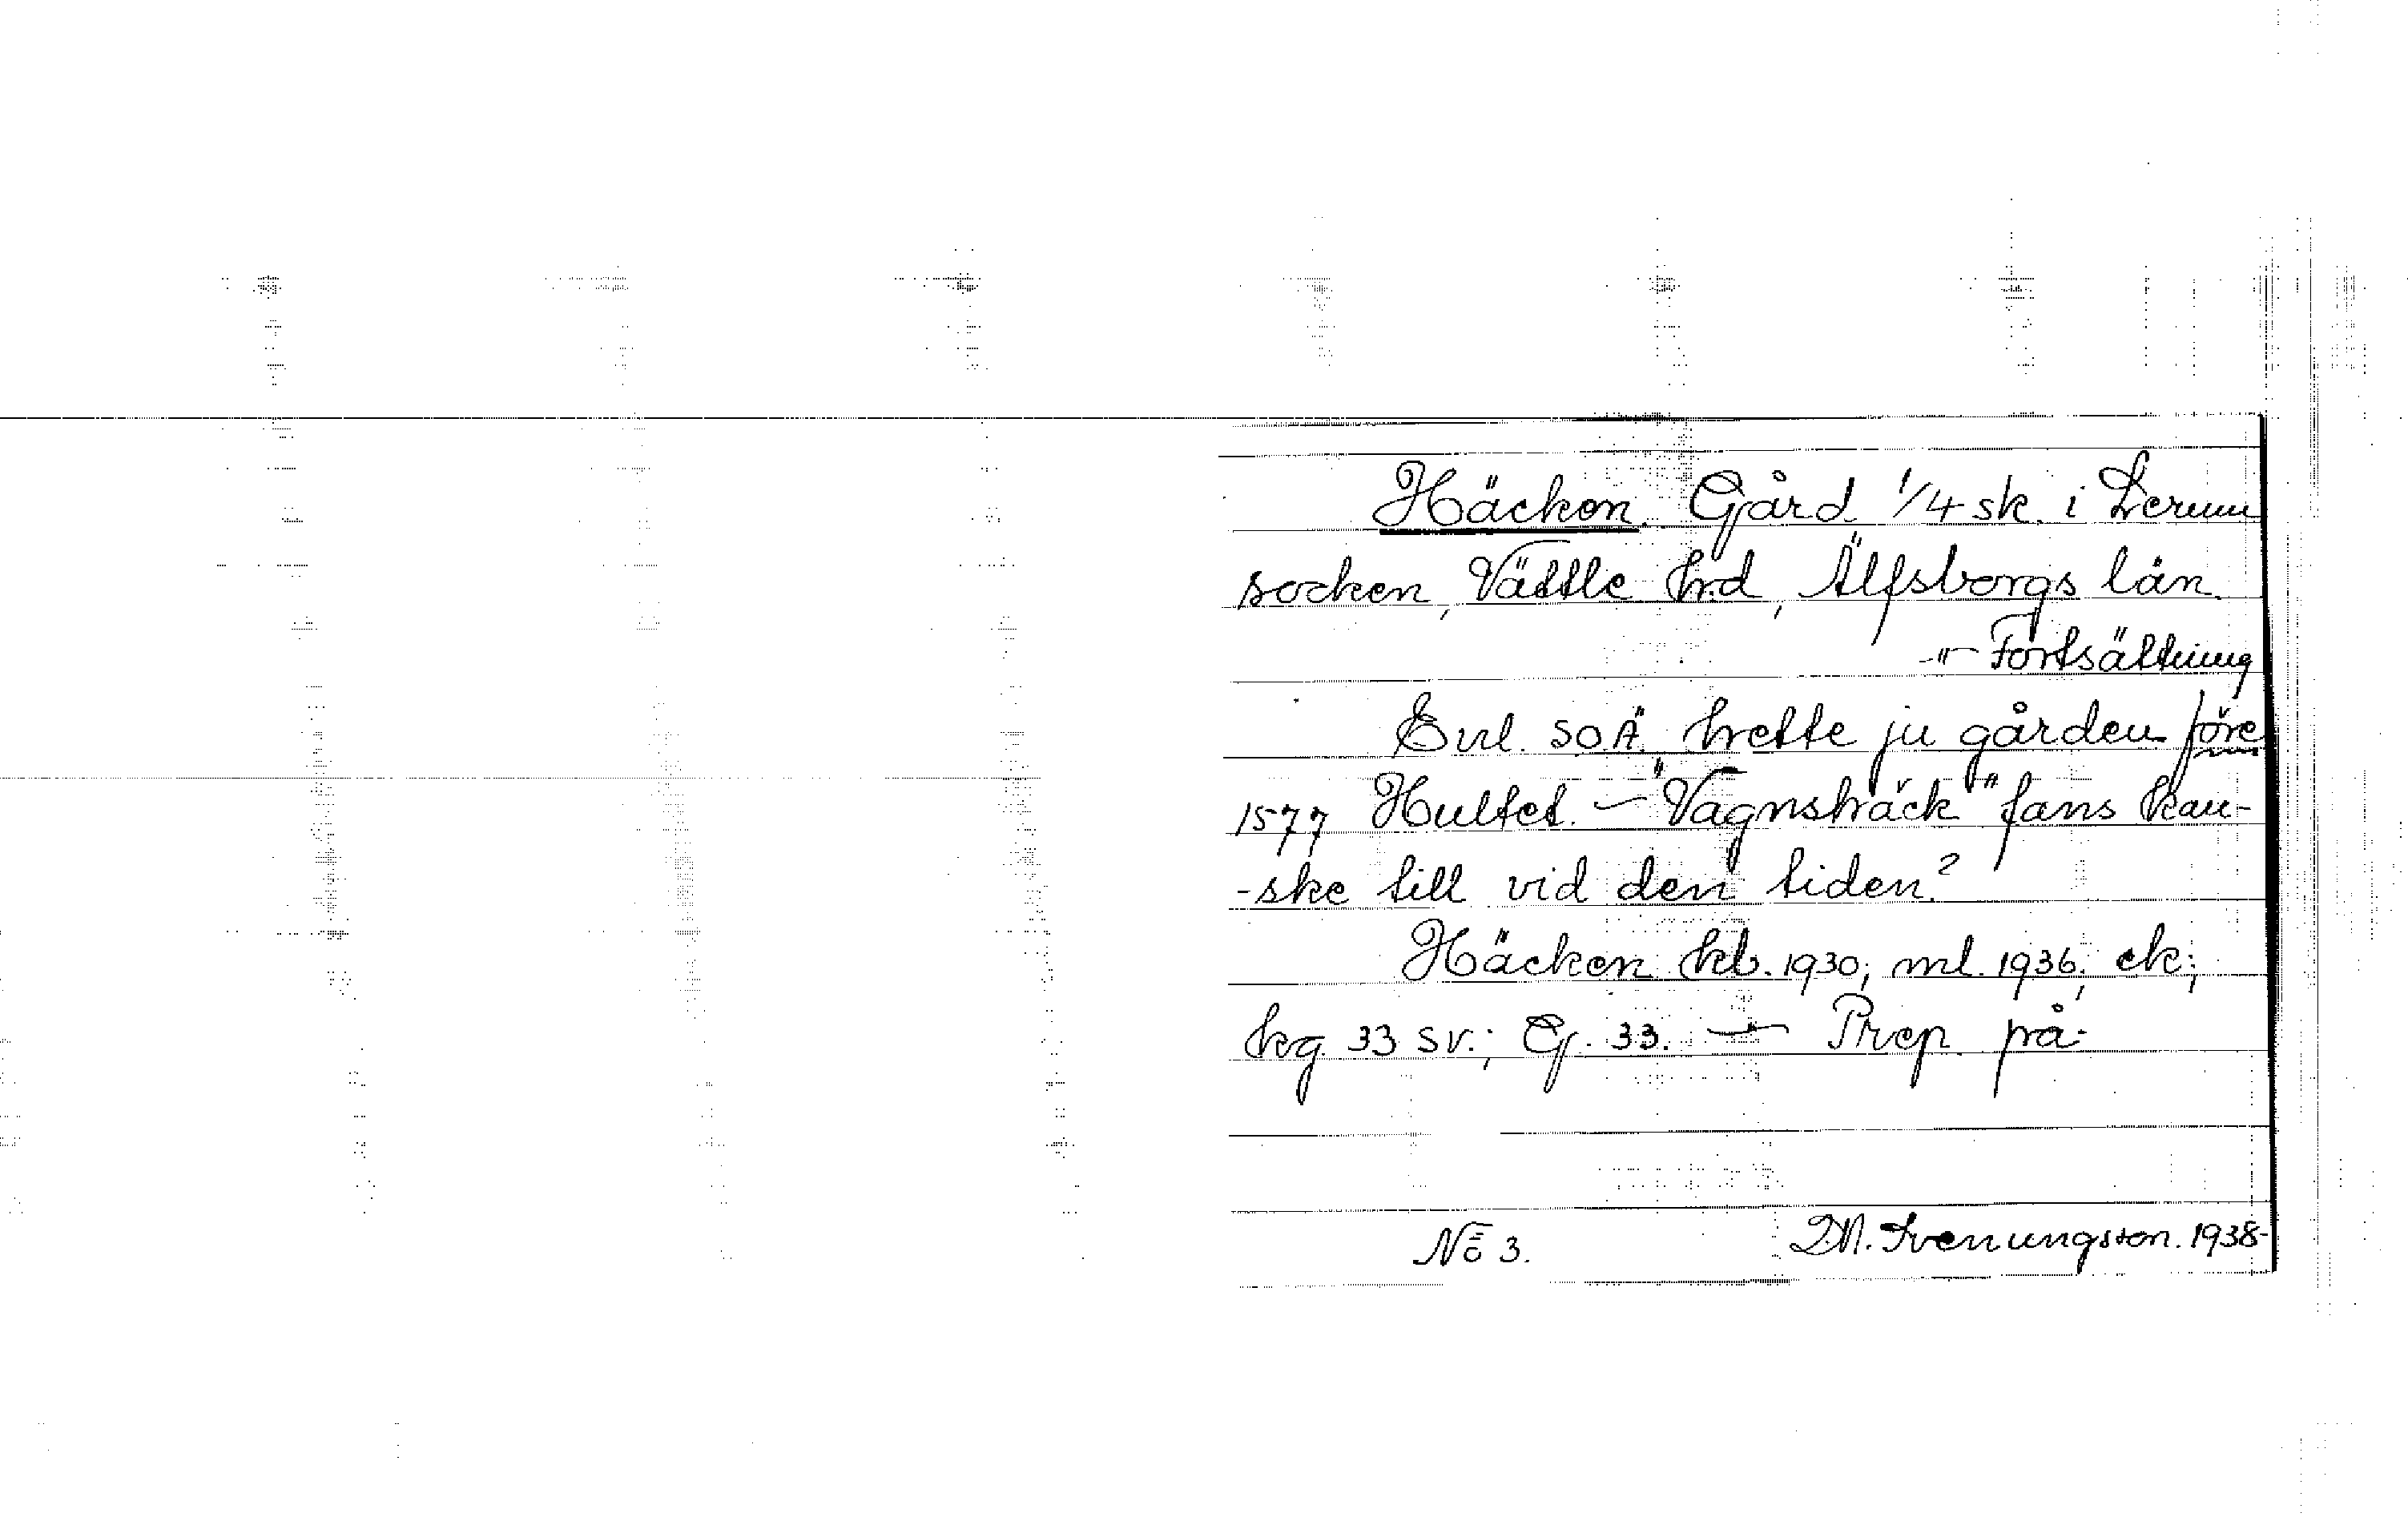 Häcken. Gård 1/4 sk. i Lerum
socken, Vättle hrd, Älfsborgs län.
-"- Fortsättning
Enl. SOÄ. hette ju gården före
1577 Hultet. — "Vagnshäck" fans kan-
-ske till vid den tiden?
Häcken kb. 1930; ml. 1936; ek;
kg 33 sv.; Gj. 33. — Prep. på-
No 3. D.N. Svenungsson. 1938-